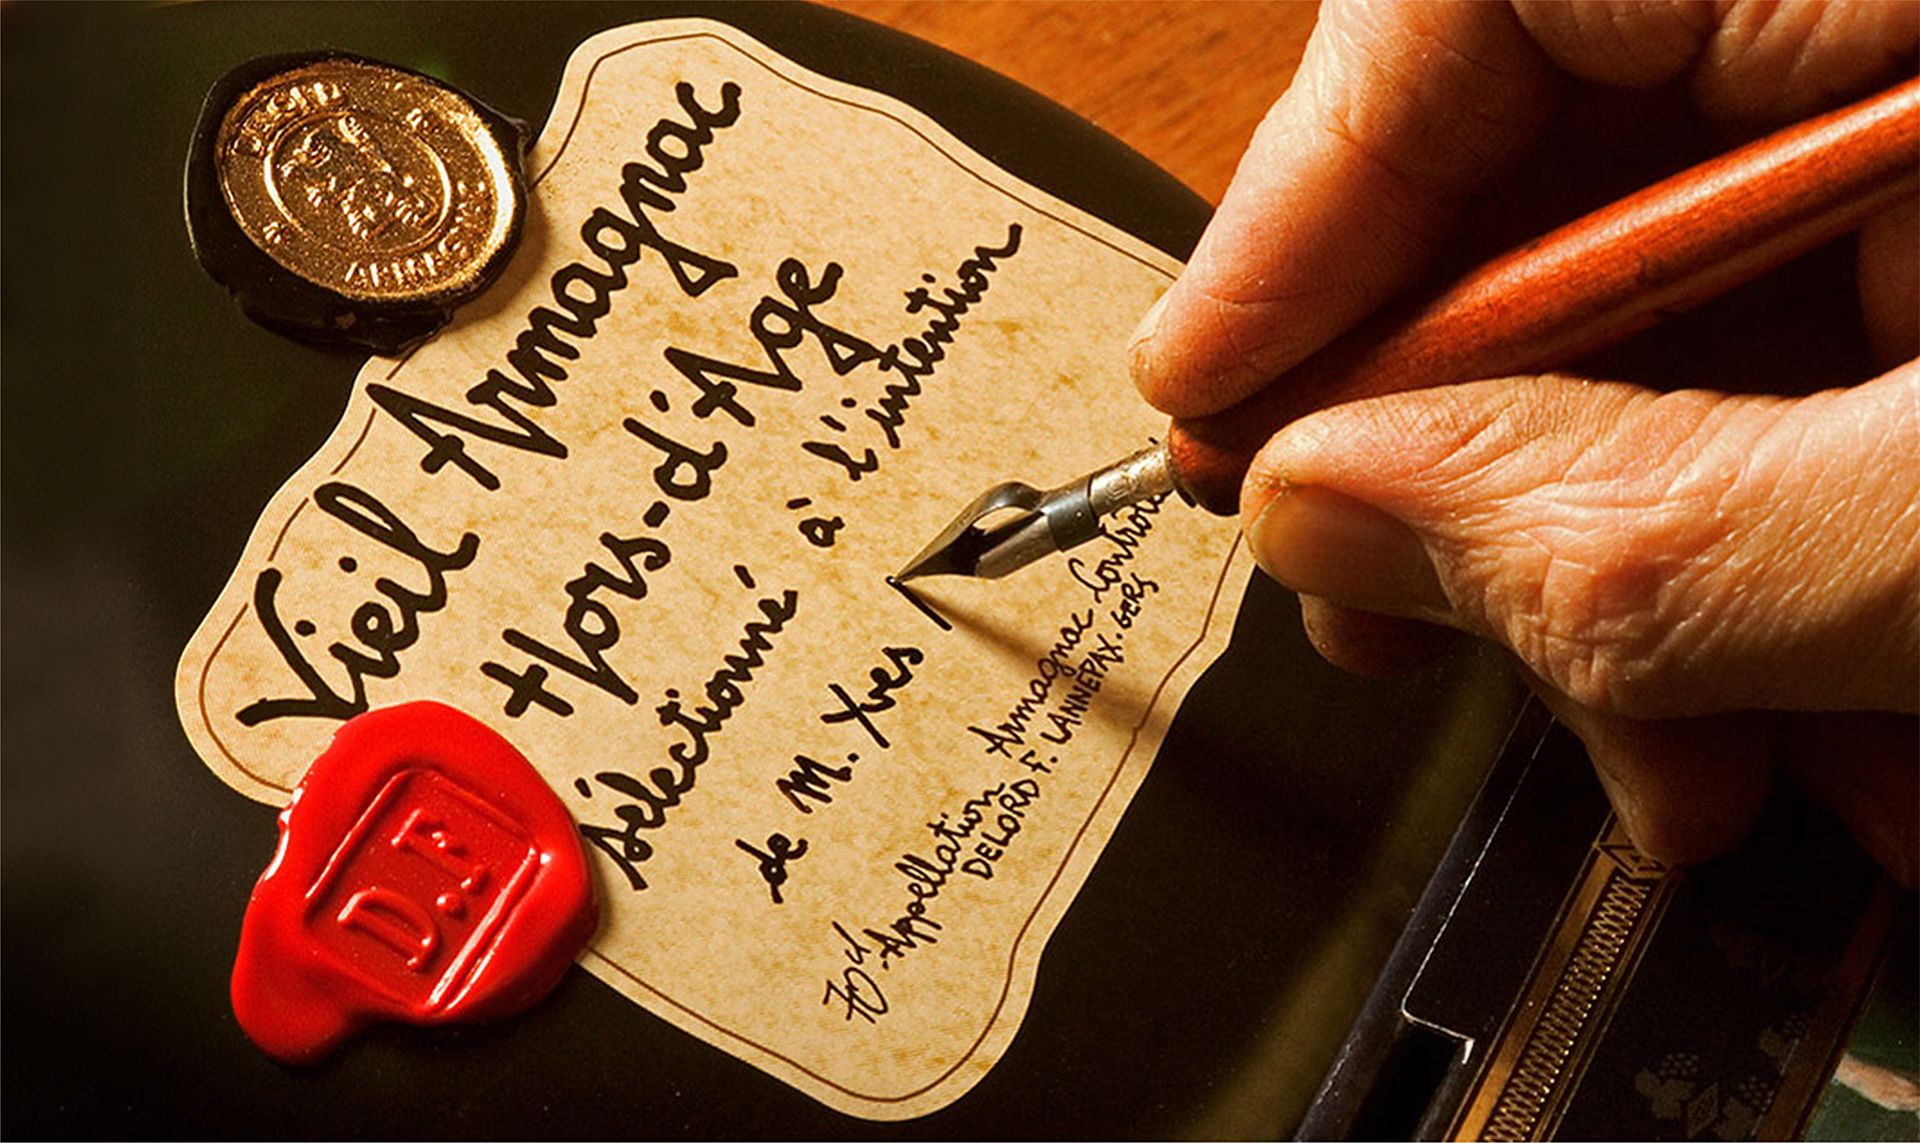 Vieil Armagnac
Hors-d'Age
sélectionné à l'intention
de M. Yves
70cl Appellation Armagnac Contrôlée
DELORD F. LANNEPAX. GERS
D.F